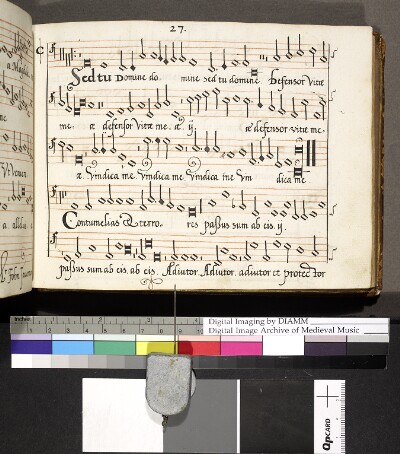 27.
C
Sed tu Domine do mine sed tu domine Defensor vitæ
me æ defensor vitæ me. æ. ij. æ defensor vitæ me.
æ. Vindica me Vindica me Vindica me Vin dica me
Contumelias & terro. res passus sum ab eis. ij.
passus sum ab eis. ab eis. Adiutor Adiutor. adiutor et protec tor
Inches
Digital Imaging by DIAMM
Digital Image Archive of Medieval Music
OpCARD